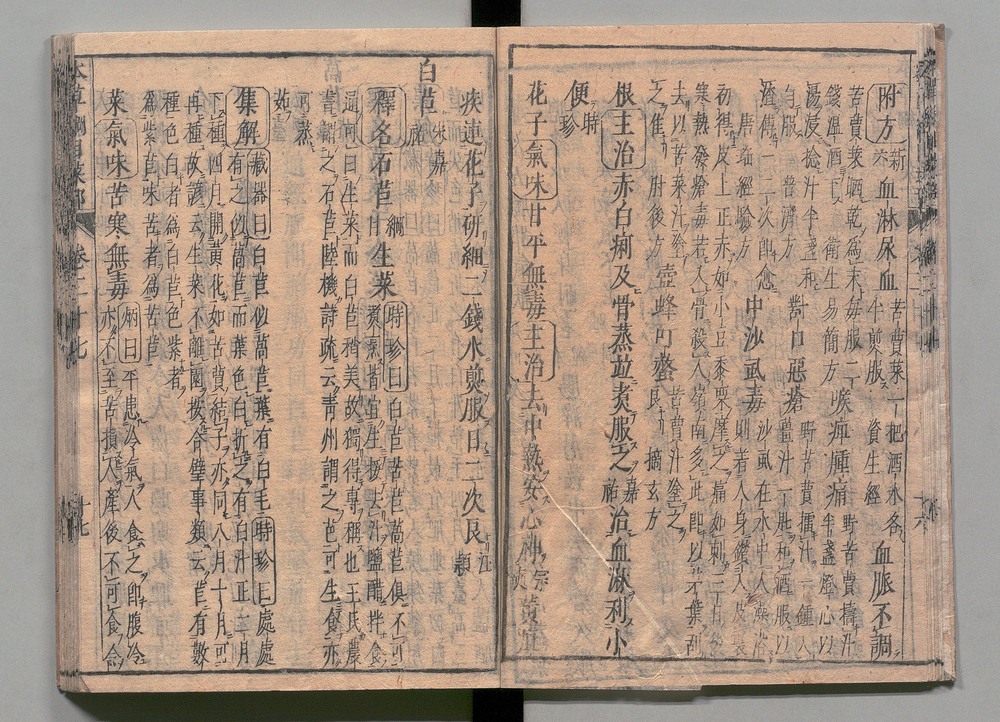 附方新六 血淋尿血 苦蕒菜一把酒水各半煎服 資生經 血脈不調
苦蕒菜晒乾為末毎服二錢温酒下 衛生易簡方 喉痺腫痛 野苦蕒擣汁半盞燈心以
湯浸捻汁半盞和勻服 普濟方 對口惡瘡 野苦蕒擂汁一鍾入薑汁一匙和酒服以
渣傅一二次即愈 唐瑤經驗方 中沙虱毒 沙虱在水中人澡浴則著人身鑽入皮裏
初得皮上正赤如小豆黍粟摩之痛如刺三日後寒熱發瘡毒若入骨殺人嶺南多此即以茅葉刮
去以苦菜汁塗之佳 肘後方 壺蜂叮螫 苦蕒汁塗之良 摘玄方
根主治赤白痢及骨蒸並煮服之嘉祐治血淋利小
便時珍
花子氣味甘平無毒主治去中熱安心神宗奭黃疸
疾連花子研細二錢水煎服日二次良汪穎
白苣宋嘉祐
釋名石苣綱目生菜時珍曰白苣苦苣萵苣俱不可煮烹皆宜生挼去汁鹽醋拌食
通可曰生菜而白苣稍美故獨得專稱也王氏農書謂之石苣陸機詩疏云青州謂之芑可生食亦
可蒸茹
集解藏器曰白苣似萵苣葉有白毛時珍曰處處有之似萵苣而葉色白折之有白汁正二月
下種四月開黃花如苦蕒結子亦同八月十月可再種故諺云生菜不離園按合璧事類云苣有數
種色白者為白苣色紫者為紫苣味苦者為苦苣
菜氣味苦寒無毒炳曰平患冷氣人食之即腹冷亦不至苦損人產後不可食令